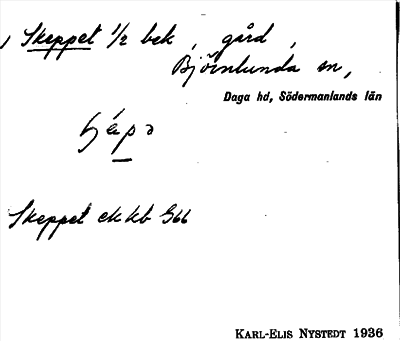 Skeppet 1/2 bek, gård,
Björnlunda sn,
Daga hd, Södermanlands län
Skeppet ek kb 566
KARL-ELIS NYSTEDT 1936